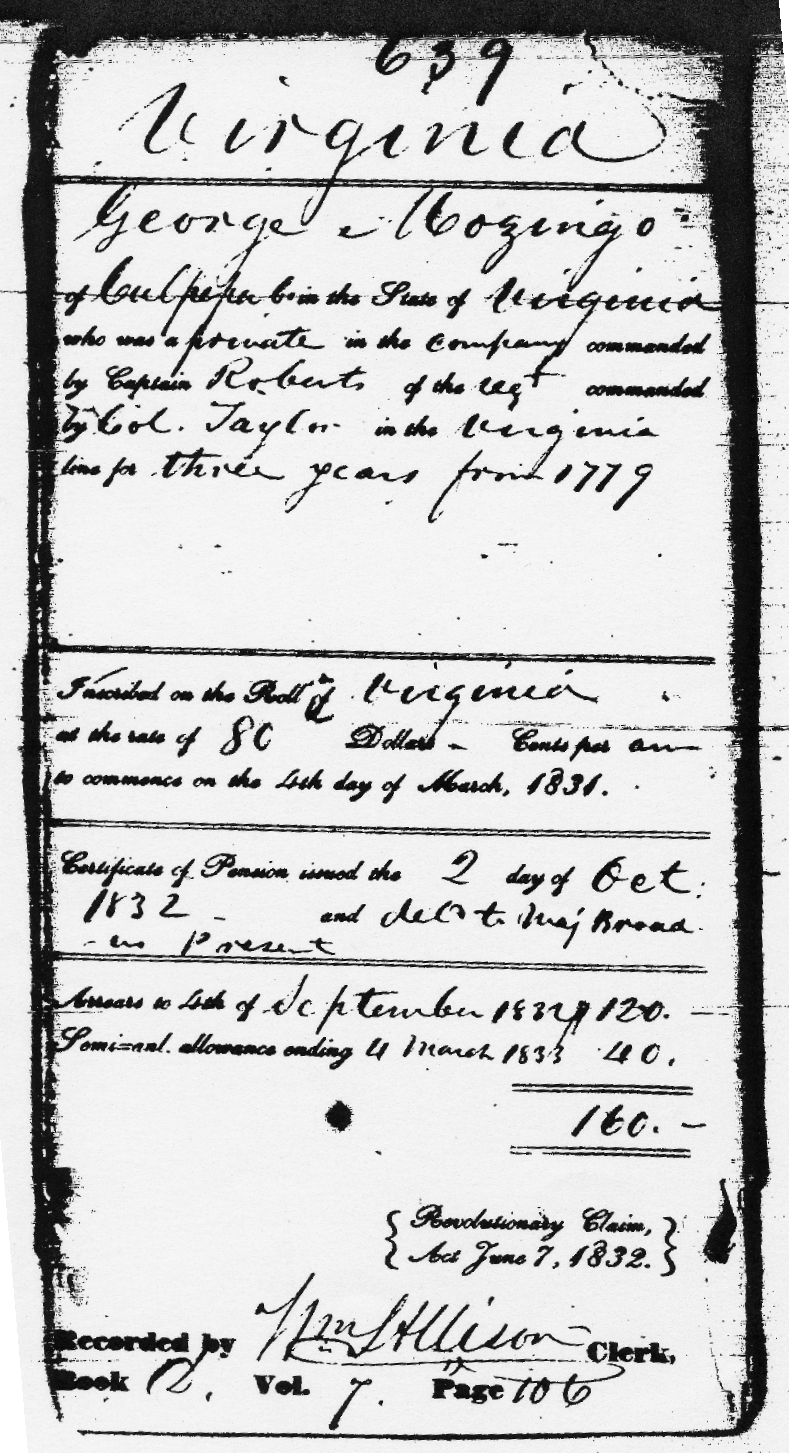 639
Virginia
George Mozingo
of Culpeper Co in the State of Virginia
who was a private in the company commanded
by Captain Roberts of the regt commanded
by Col. Taylor in the Virginia
line for three years from 1779
Inscribed on the Roll of Virginia
at the rate of 80 Dollars - Cents per ann
to commence on the 4th day of March, 1831.
Certificate of Pension issued the 2 day of Oct.
1832 - and deld to Maj Broad
-us Present
Arrears to 4th of September 1832 120.-
Semi-anl. allowance ending 4 March 1833 40.
160.-
{ Revolutionary Claim, }
{ Act June 7, 1832. }
Recorded by Wm Allison Clerk,
Book D, Vol. 7. Page 106